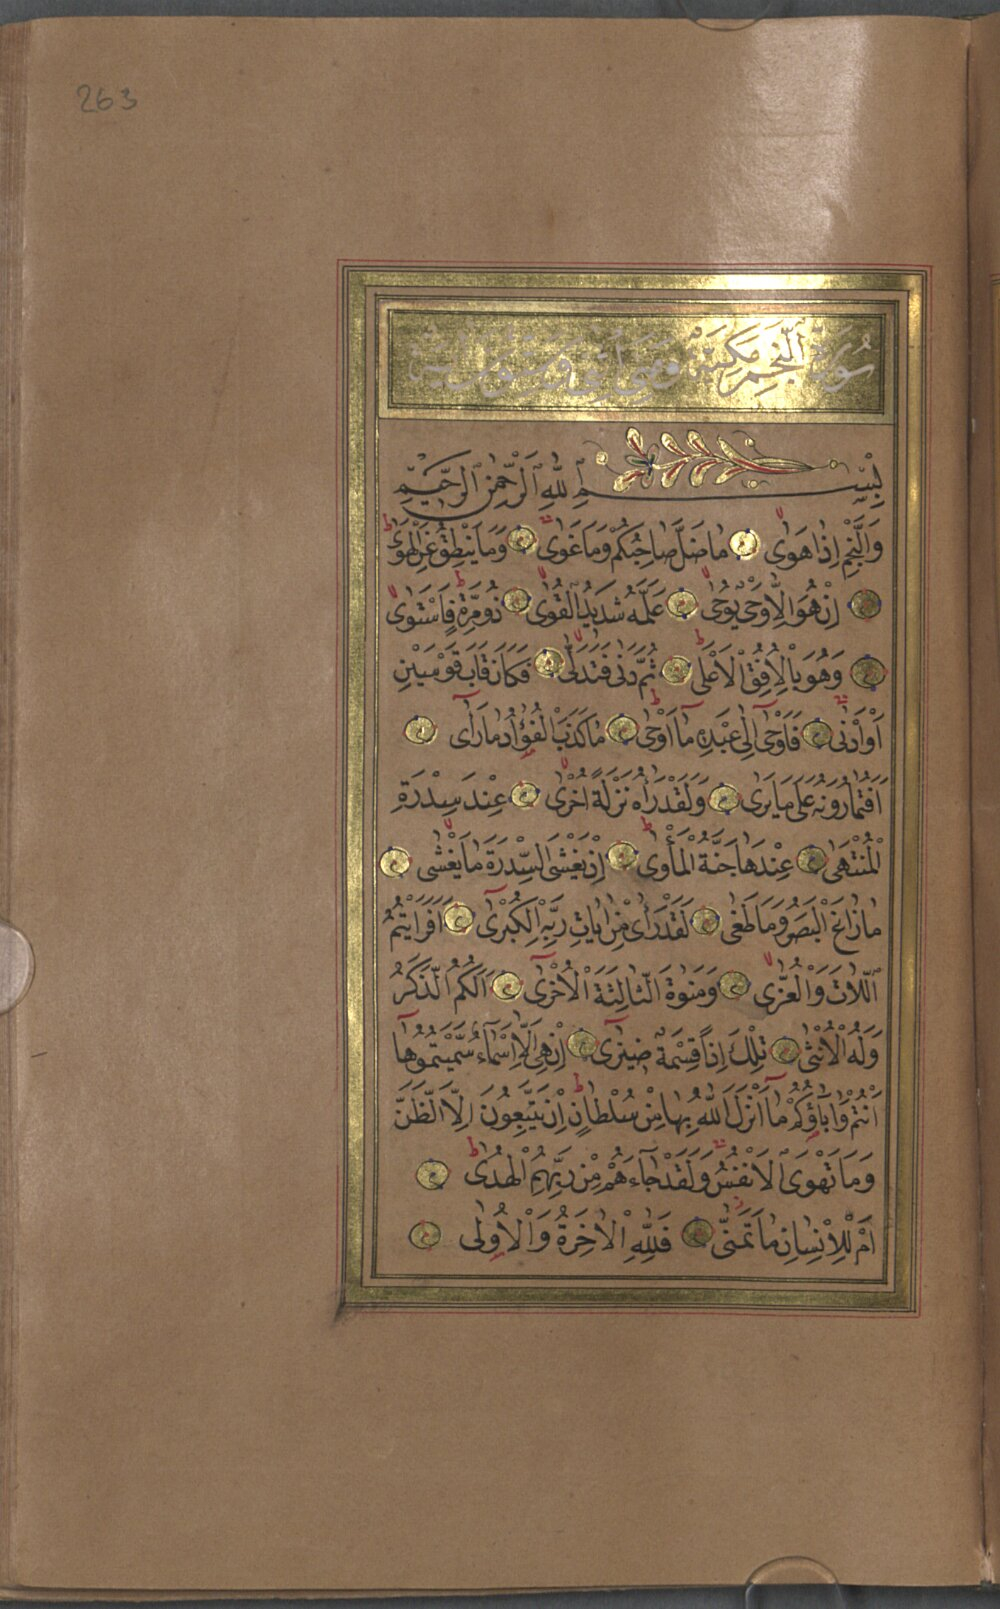 263
سُورَةُ ٱلنَّجْمِ مَكِيَّةٌ وَهِىَ اثنتان وستون آية
بِسْمِ اللّٰهِ الرَّحْمٰنِ الرَّحِيمِ
وَالنَّجْمِ اِذَا هَوٰى مَا ضَلَّ صَاحِبُكُمْ وَمَا غَوٰى وَمَا يَنْطِقُ عَنِ الْهَوٰى
اِنْ هُوَ اِلَّا وَحْىٌ يُوحٰى عَلَّمَهُ شَدِيدُ الْقُوٰى ذُو مِرَّةٍ فَاسْتَوٰى
وَهُوَ بِالْاُفُقِ الْاَعْلٰى ثُمَّ دَنٰى فَتَدَلّٰى فَكَانَ قَابَ قَوْسَيْنِ
اَوْ اَدْنٰى فَاَوْحٰى اِلٰى عَبْدِهِ مَا اَوْحٰى مَا كَذَبَ الْفُؤٰادُ مَا رَاٰى
اَفَتُمَارُونَهُ عَلٰى مَا يَرٰى وَلَقَدْ رَاٰهُ نَزْلَةً اُخْرٰى عِنْدَ سِدْرَةِ
الْمُنْتَهٰى عِنْدَهَا جَنَّةُ الْمَأْوٰى اِذْ يَغْشَى السِّدْرَةَ مَا يَغْشٰى
مَا زَاغَ الْبَصَرُ وَمَا طَغٰى لَقَدْ رَاٰى مِنْ اٰيَاتِ رَبِّهِ الْكُبْرٰى اَفَرَاَيْتُمُ
اللَّاتَ وَالْعُزّٰى وَمَنٰوةَ الثَّالِثَةَ الْاُخْرٰى اَلَكُمُ الذَّكَرُ
وَلَهُ الْاُنْثٰى تِلْكَ اِذًا قِسْمَةٌ ضِيزٰى اِنْ هِىَ اِلَّا اَسْمَاءٌ سَمَّيْتُمُوهَا
اَنْتُمْ وَاٰبَاؤُكُمْ مَا اَنْزَلَ اللّٰهُ بِهَا مِنْ سُلْطَانٍ اِنْ يَتَّبِعُونَ اِلَّا الظَّنَّ
وَمَا تَهْوَى الْاَنْفُسُ وَلَقَدْ جَاءَهُمْ مِنْ رَبِّهِمُ الْهُدٰى
اَمْ لِلْاِنْسَانِ مَا تَمَنّٰى فَلِلّٰهِ الْاٰخِرَةُ وَالْاُولٰى